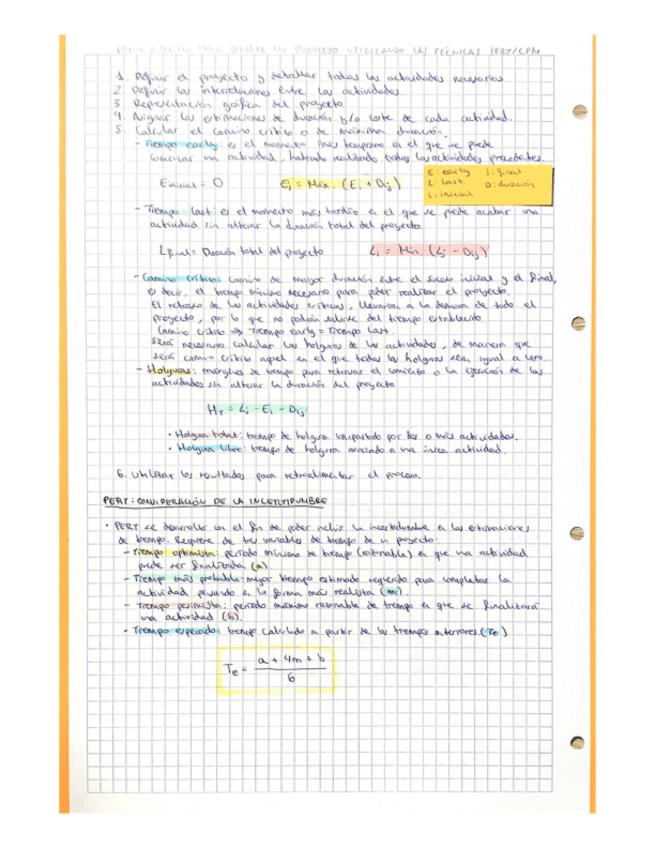 PARA UN PROYECTO UTILIZANDO LAS TÉCNICAS PERT/CPM
1. Definir el proyecto y detallar todas las actividades necesarias.
2. Definir las interrelaciones entre las actividades.
3. Representación gráfica del proyecto
4. Asignar las estimaciones de duración y/o coste de cada actividad.
5. Calcular el camino crítico o de máxima duración.
- Tiempo early: es el momento más temprano en el que se puede
comenzar una actividad, habiendo realizado todas las actividades precedentes.
Einicial = 0
Ej = Máx. (Ei + Dij)
E: early j: final
L: last D: duración
i: inicial
- Tiempo last: es el momento más tardío en el que se puede acabar una
actividad sin alterar la duración total del proyecto.
Lfinal = Duración total del proyecto
Li = Mín. (Lj - Dij)
- Camino crítico: camino de mayor duración entre el suceso inicial y el final,
es decir, el tiempo mínimo necesario para poder realizar el proyecto.
El retraso de las actividades críticas, llevaran a la demora de todo el
proyecto, por lo que no podrán salirse del tiempo establecido.
Camino crítico → Tiempo early = Tiempo Last.
Será necesario calcular las holguras de las actividades, de manera que
será camino crítico aquel en el que todas las holguras sean igual a cero.
- Holguras: márgenes de tiempo para retrasar el comienzo o la ejecución de las
actividades sin alterar la duración del proyecto
HT = Lj - Ei - Dij
• Holgura total: tiempo de holgura compartido por dos o más actividades.
• Holgura libre: tiempo de holgura asociado a una única actividad.
6. Utilizar los resultados para retroalimentar el proceso.
PERT: CONSIDERACIÓN DE LA INCERTIDUMBRE
• PERT se desarrolla con el fin de poder incluir la incertidumbre en las estimaciones
de tiempo. Requiere de tres variables de tiempo de un proyecto:
- Tiempo optimista: periodo mínimo de tiempo (razonable) en que una actividad
puede ser finalizada (a).
- Tiempo más probable: mejor tiempo estimado requerido para completar la
actividad pensando en la forma más realista (m).
- Tiempo pesimista: periodo máximo razonable de tiempo en que se finalizará
una actividad (b).
- Tiempo esperado: tiempo calculado a partir de los tiempos anteriores (Te)
Te = a + 4m + b
6